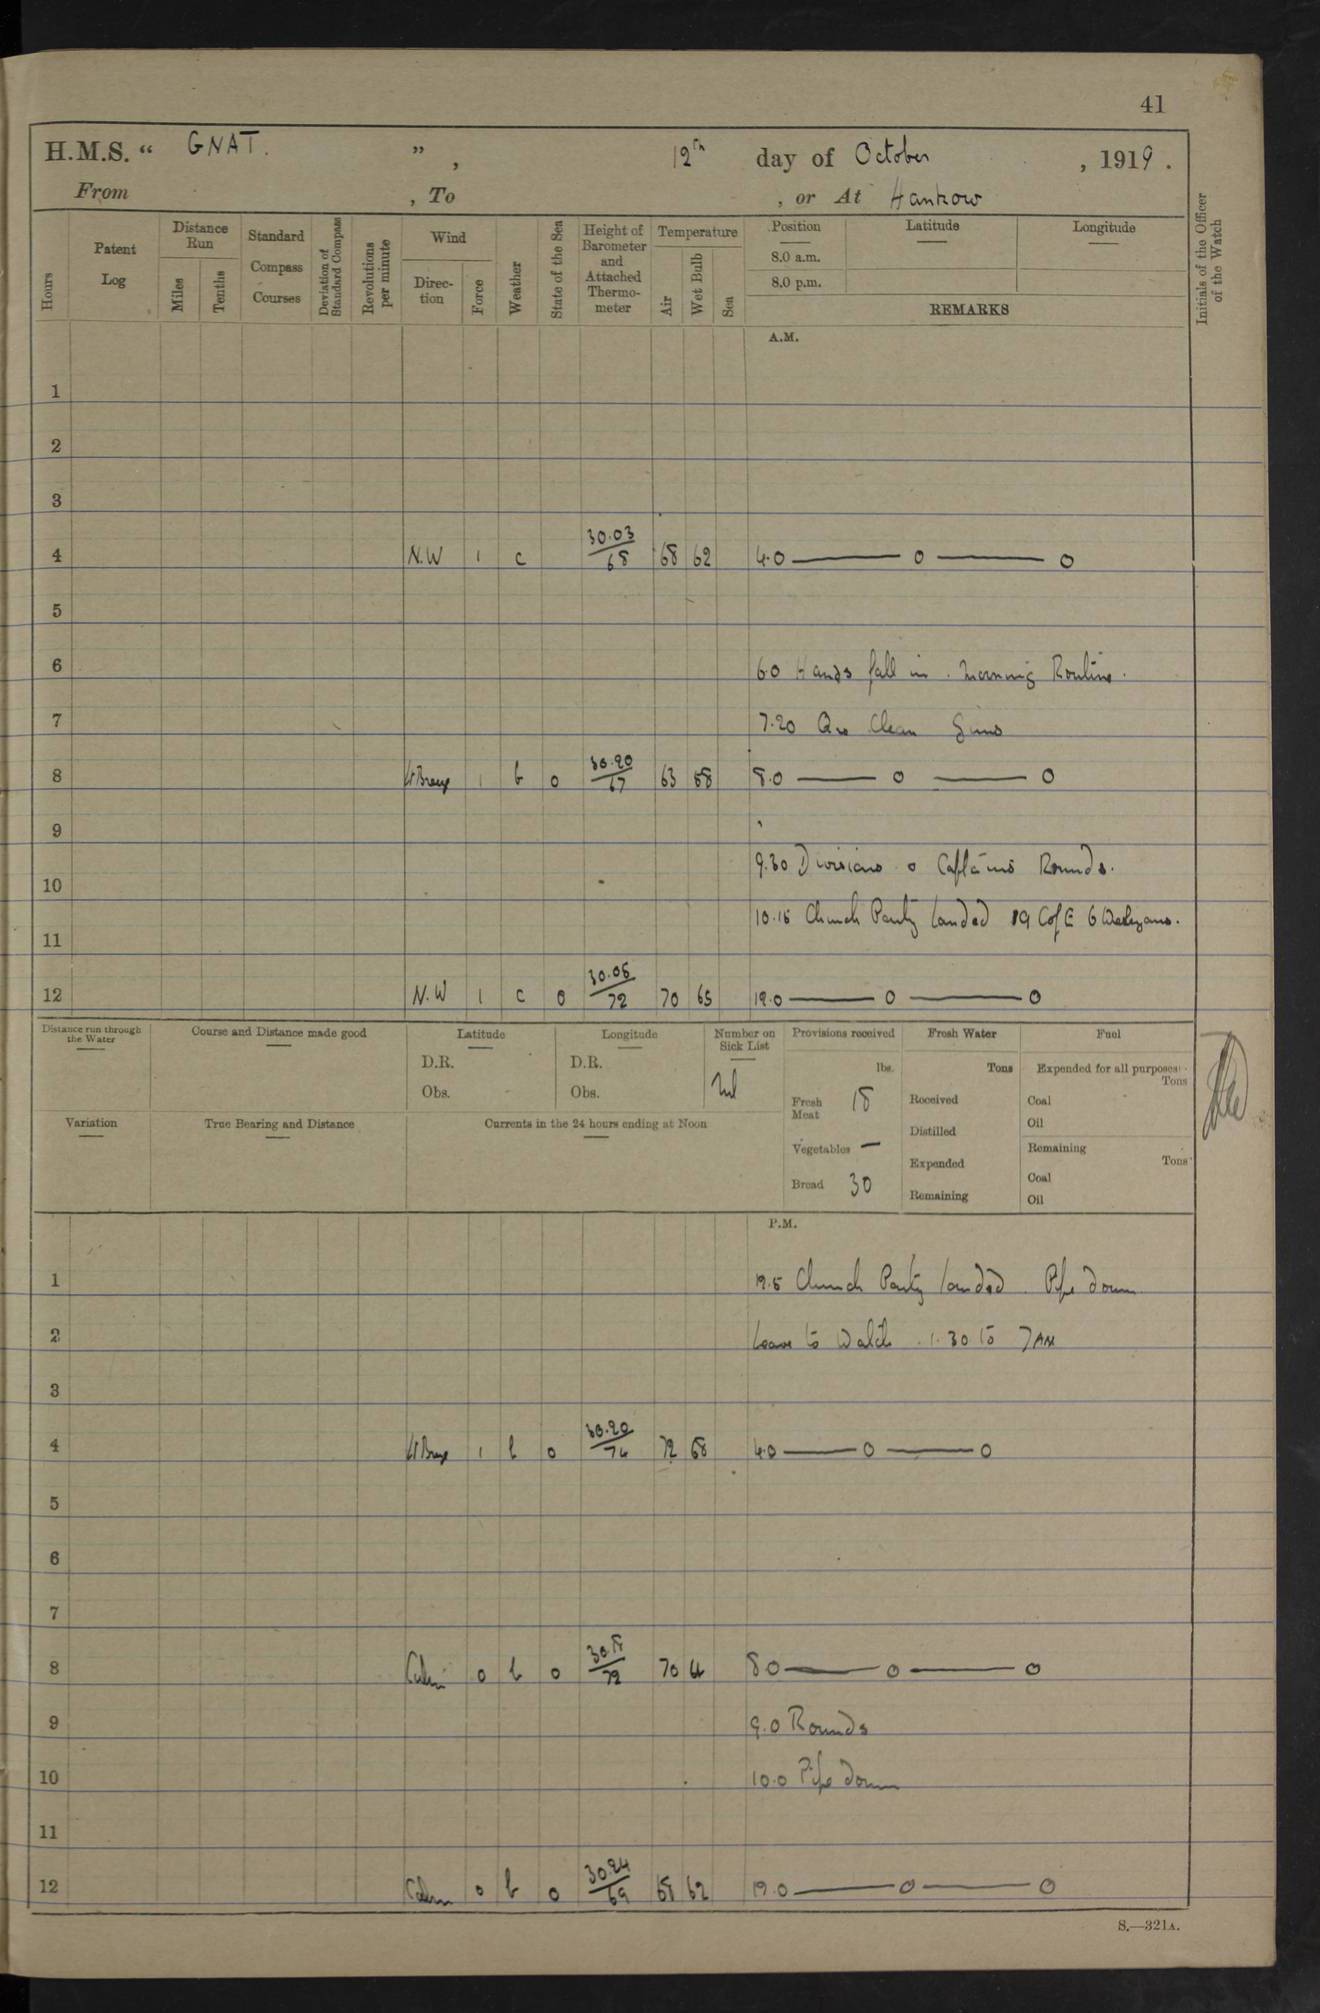 41
H.M.S. “ GNAT. ” , 12th day of October , 1919 .
From , To , or At Hankow
Hours
Patent Log
Distance Run
Miles
Tenths
Standard Compass Courses
Deviation of Standard Compass
Revolutions per minute
Wind
Direc-tion
Force
Weather
State of the Sea
Height of Barometer and Attached Thermo-meter
Temperature
Air
Wet Bulb
Sea
Position
8.0 a.m.
8.0 p.m.
Latitude
Longitude
REMARKS
Initials of the Officer of the Watch
A.M.
1
2
3
4 N.W 1 c 30.03/68 68 62 4.0 — o — o
5
6 6.0 Hands fall in. Morning Routine.
7 7.20 Clean Guns
8 1 b 0 30.20/67 63 58 8.0 — o — o
9
9.30 Divisions o Captains Rounds.
10
10.15 Church Party landed 19 C of E 6 Wesleyans.
11
12 N.W 1 c 0 30.05/72 70 65 12.0 — o — o
Distance run through the Water
Course and Distance made good
Latitude
D.R.
Obs.
Longitude
D.R.
Obs.
Number on Sick List
Nil
Provisions received
lbs.
Fresh Meat 18
Vegetables —
Bread 30
Fresh Water
Tons
Received
Distilled
Expended
Remaining
Fuel
Expended for all purposes
Tons
Coal
Oil
Remaining
Tons
Coal
Oil
Variation
True Bearing and Distance
Currents in the 24 hours ending at Noon
P.M.
1 12.5 Church Party landed. Pipe down
2 Leave to Watch 1.30 to 7 AM
3
4 1 b 0 30.20/74 72 68 4.0 — o — o
5
6
7
8 Calm 0 b 0 30.18/72 70 64 8.0 — o — o
9 9.0 Rounds
10 10.0 Pipe down
11
12 Calm 0 b 0 30.24/69 68 62 12.0 — o — o
S.—321A.